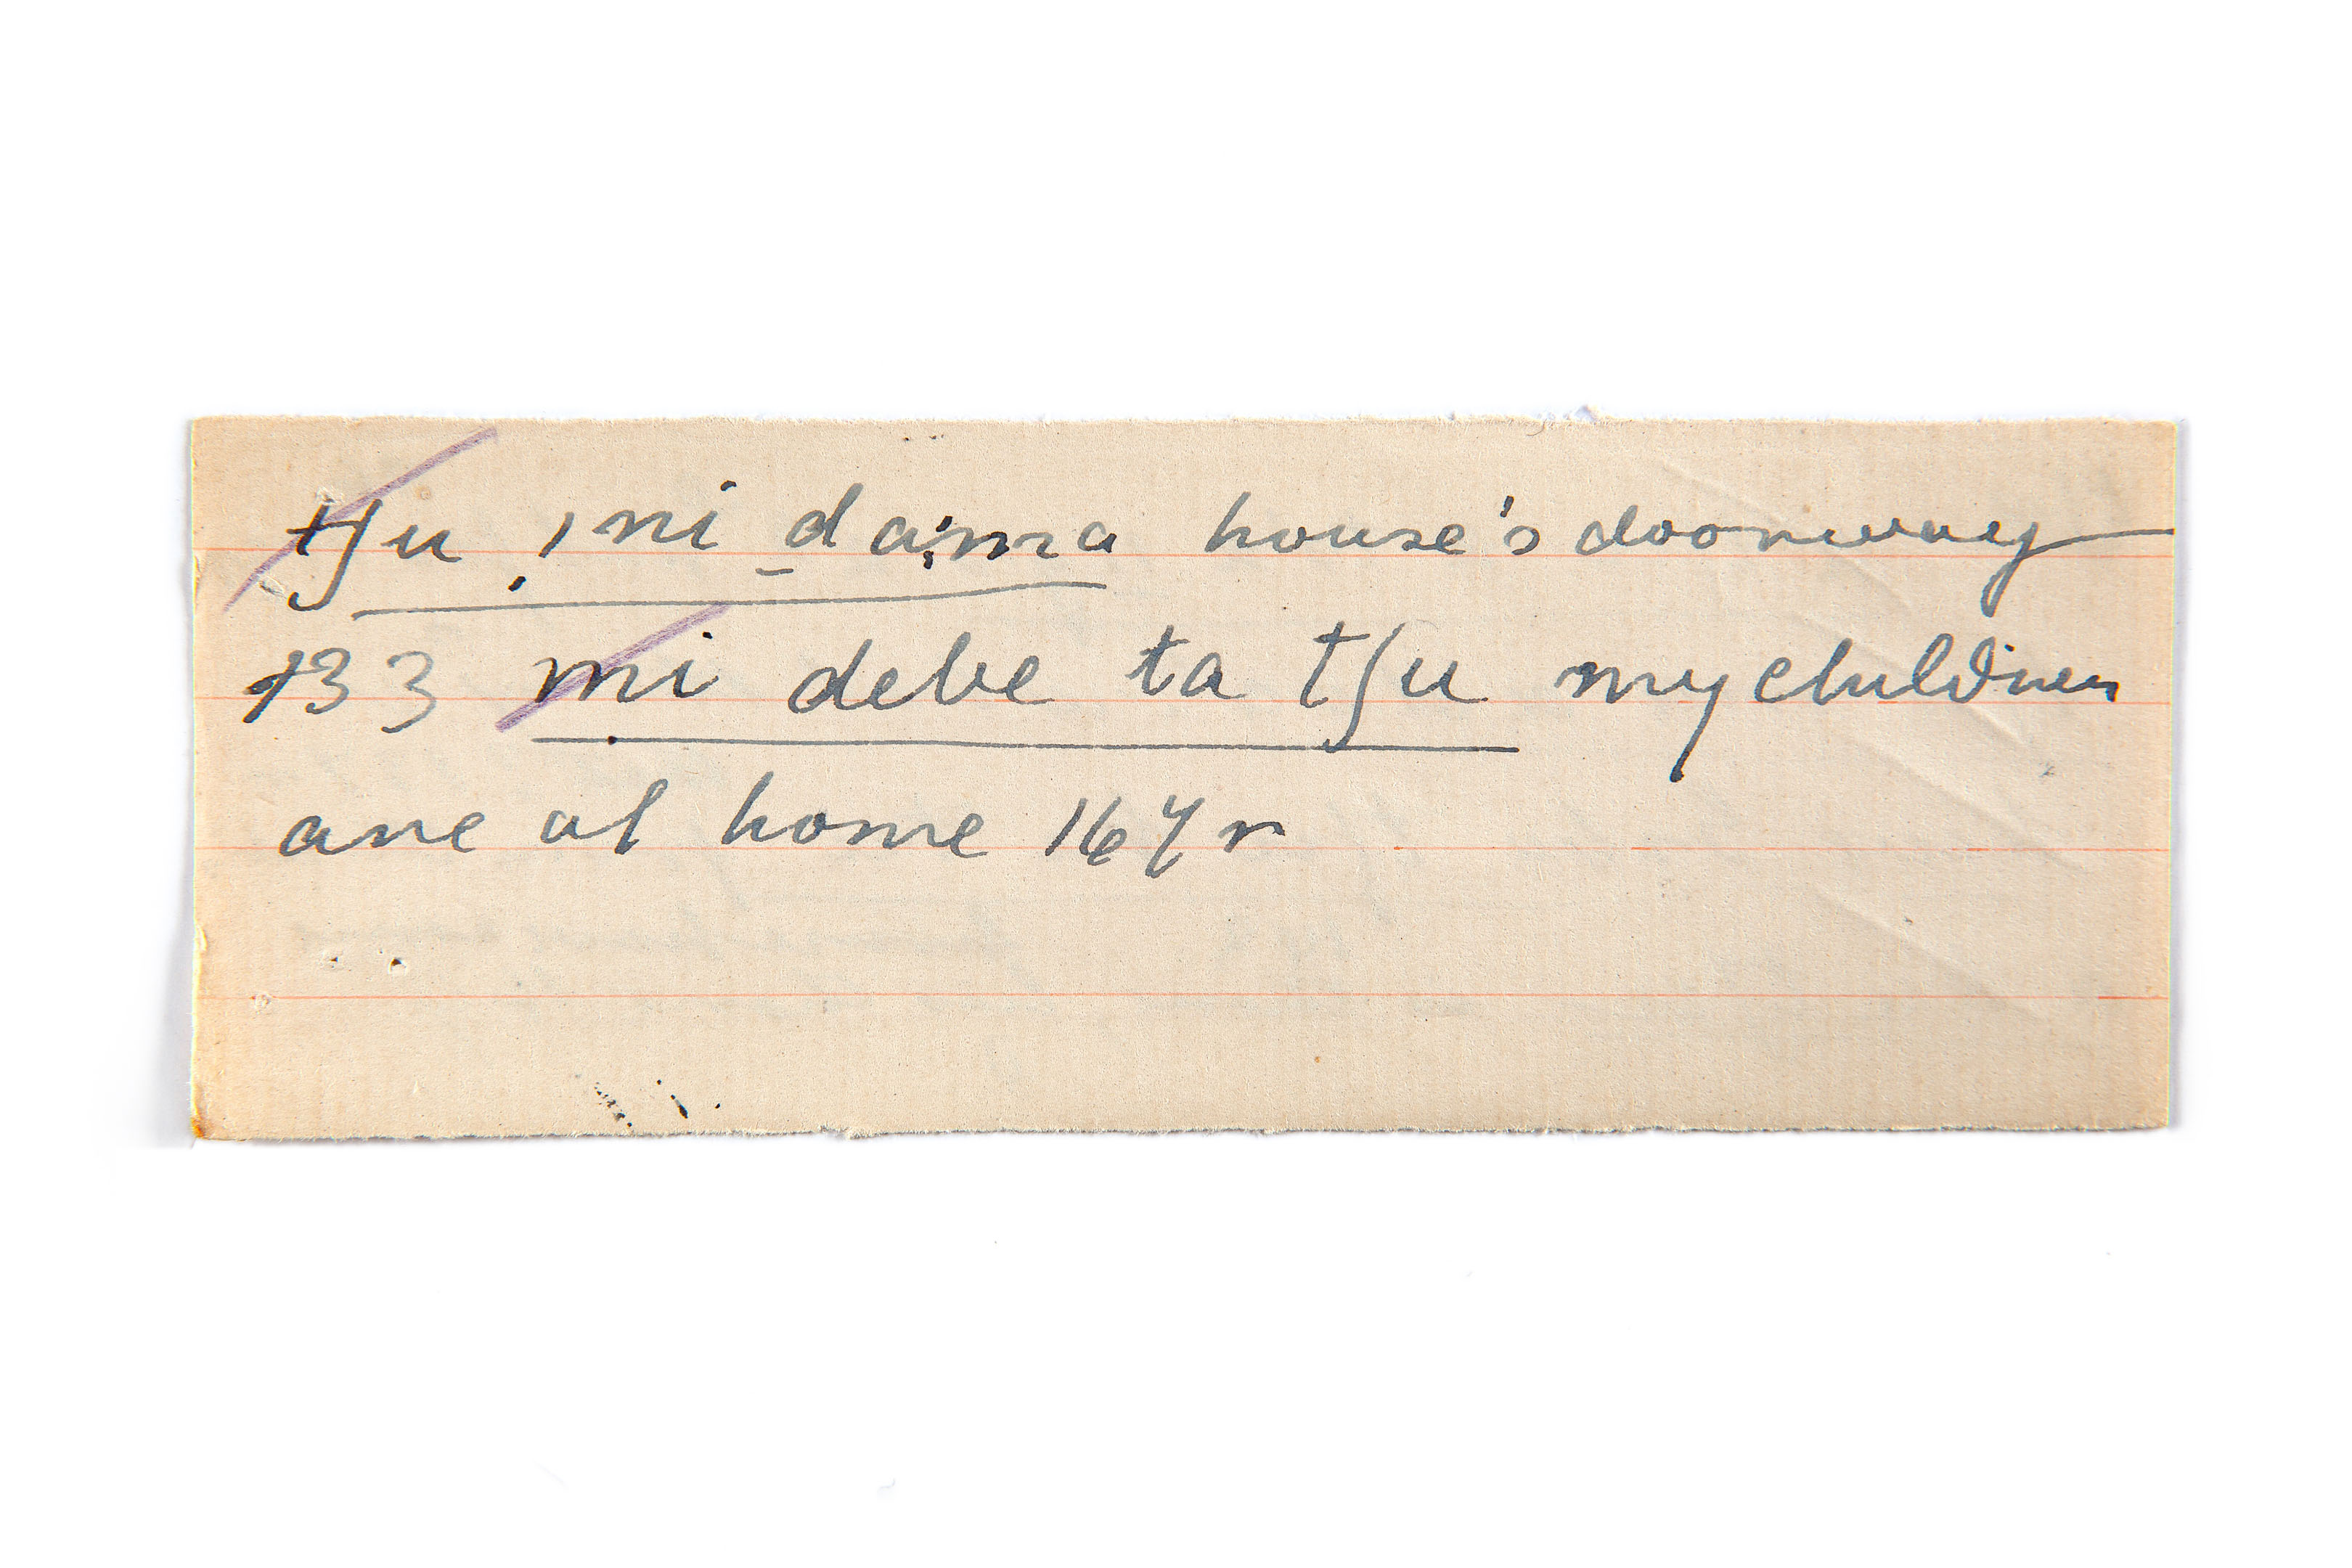 tʃu ˌni da:ma house's doorway
133 mi debe ta tʃu my children
are at home 167r